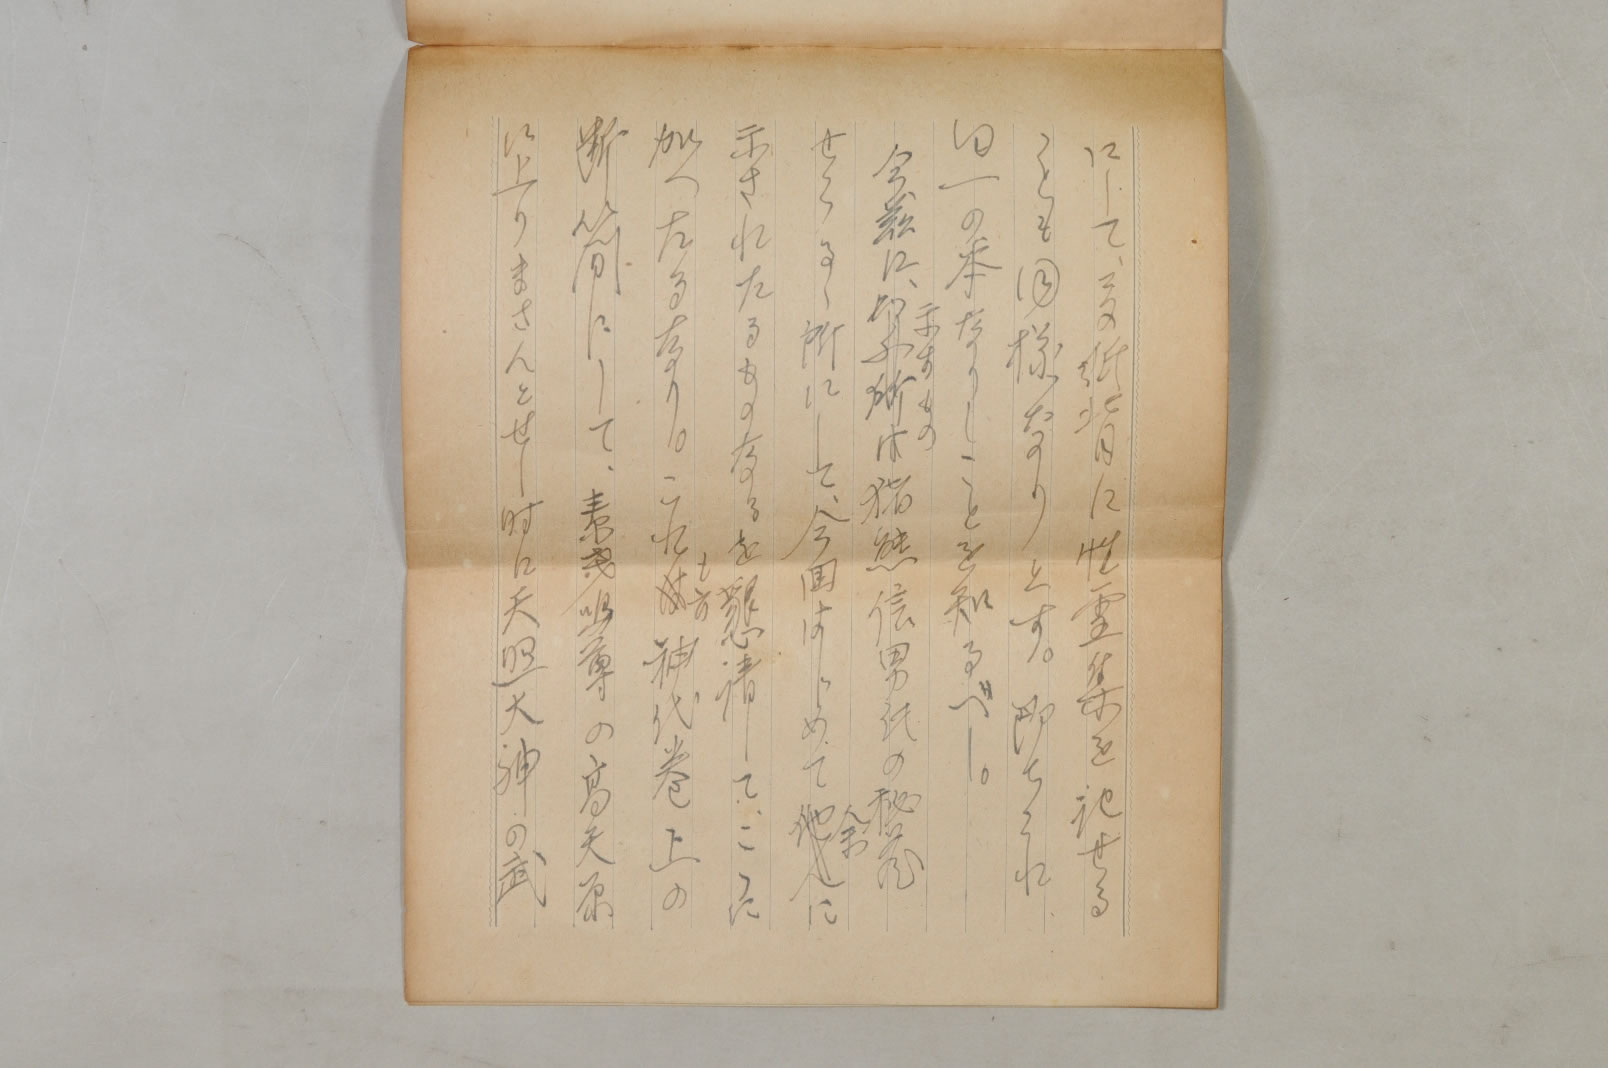 にして、その紙背に性霊集を記せる
ことも同様なりとす。即ちこれ
同一の本なりしことを知るべし。
今茲に示すもの は猪熊信男氏の秘蔵
せらるゝ所にして、今回はじめて余に
示されたるものなるを懇請して、ここに
加へたるなり。これも亦神代巻上の
断簡にして、素戔嗚尊の高天原
に上りまさんとせし時に天照大神の武